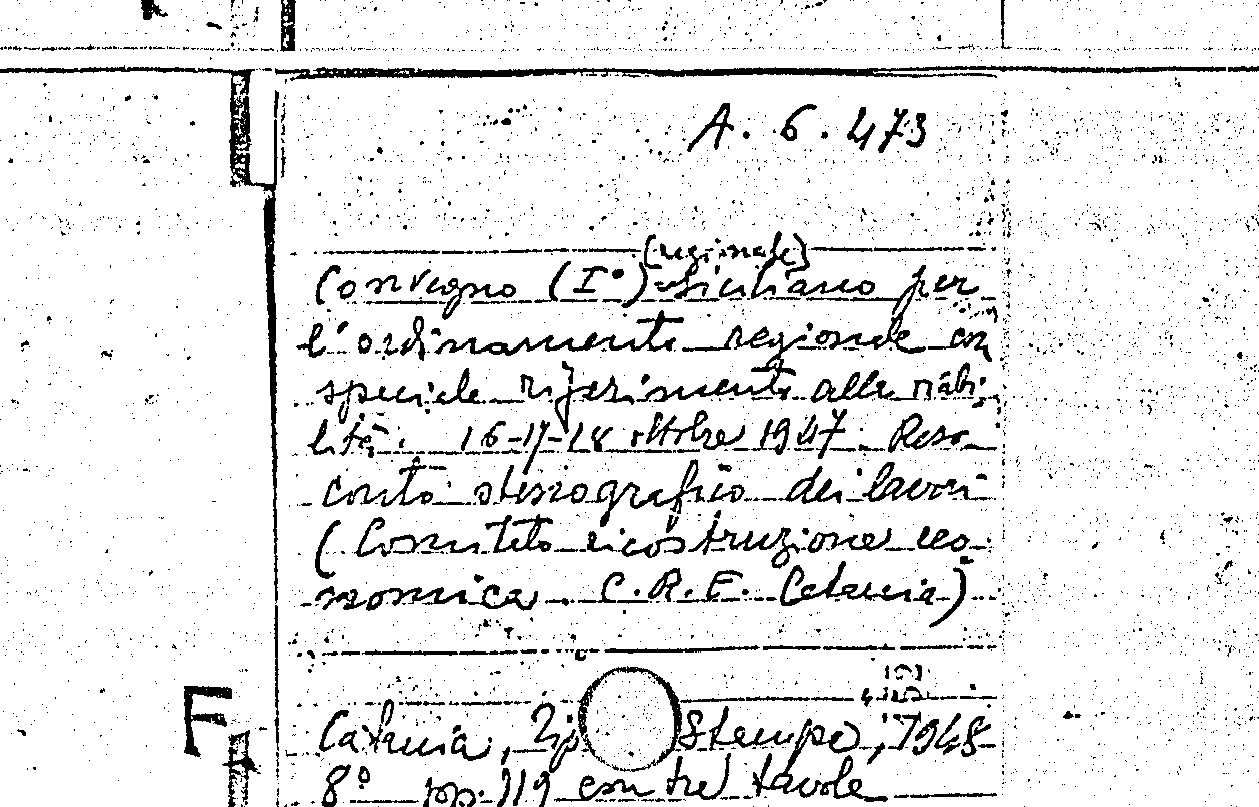 A. 6. 473
(regionale)
Convegno (I°) Siciliano per
l'ordinamento regionale con
speciale riferimento alla viabi-
lità. 16-17-18 ottobre 1947. Reso-
conto stenografico dei lavori
(Comitato ricostruzione eco-
nomica. C.R.E. Catania)
Catania, Tip. Stampa, 1948
8° pp. 119 con tre tavole
F